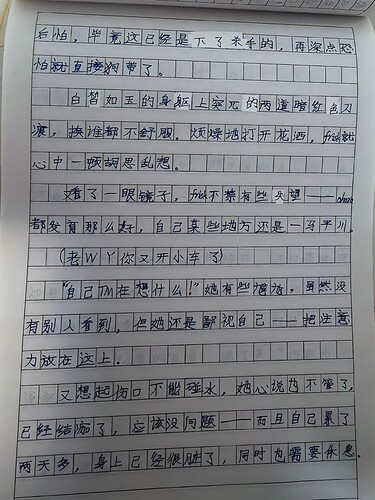 后怕。毕竟这已经是下了杀手的，再深点恐
怕就直接狗带了。
白皙如玉的身躯上突兀的两道暗红色刀
痕，换谁都不舒服。烦燥地打开花洒，就
心中一顿胡思乱想。
又看了一眼镜子，不禁有些失望——
都发育那么好，自己某些地方还是一马平川。
（老WY你又开小车了）
"自己TM在想什么！"她有些懵，虽然没
有别人看到，但她还是鄙视自己——把注意
力放在这上。
又想起伤口不能碰水，她心说也不管了，
已经结痂了，应该没问题——而且自己累了
两天多，身上已经很脏了，同时也需要休息。